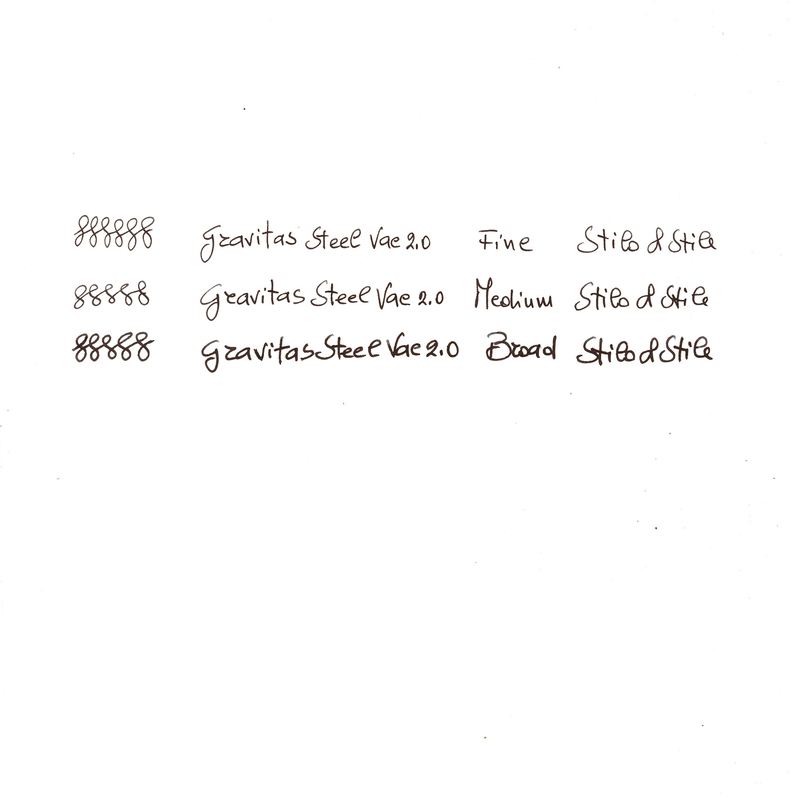 888888 Gravitas Steel Vac 2.0 Fine Stilo & Stile
88888 Gravitas Steel Vac 2.0 Medium Stilo & Stile
88888 Gravitas Steel Vac 2.0 Broad Stilo & Stile